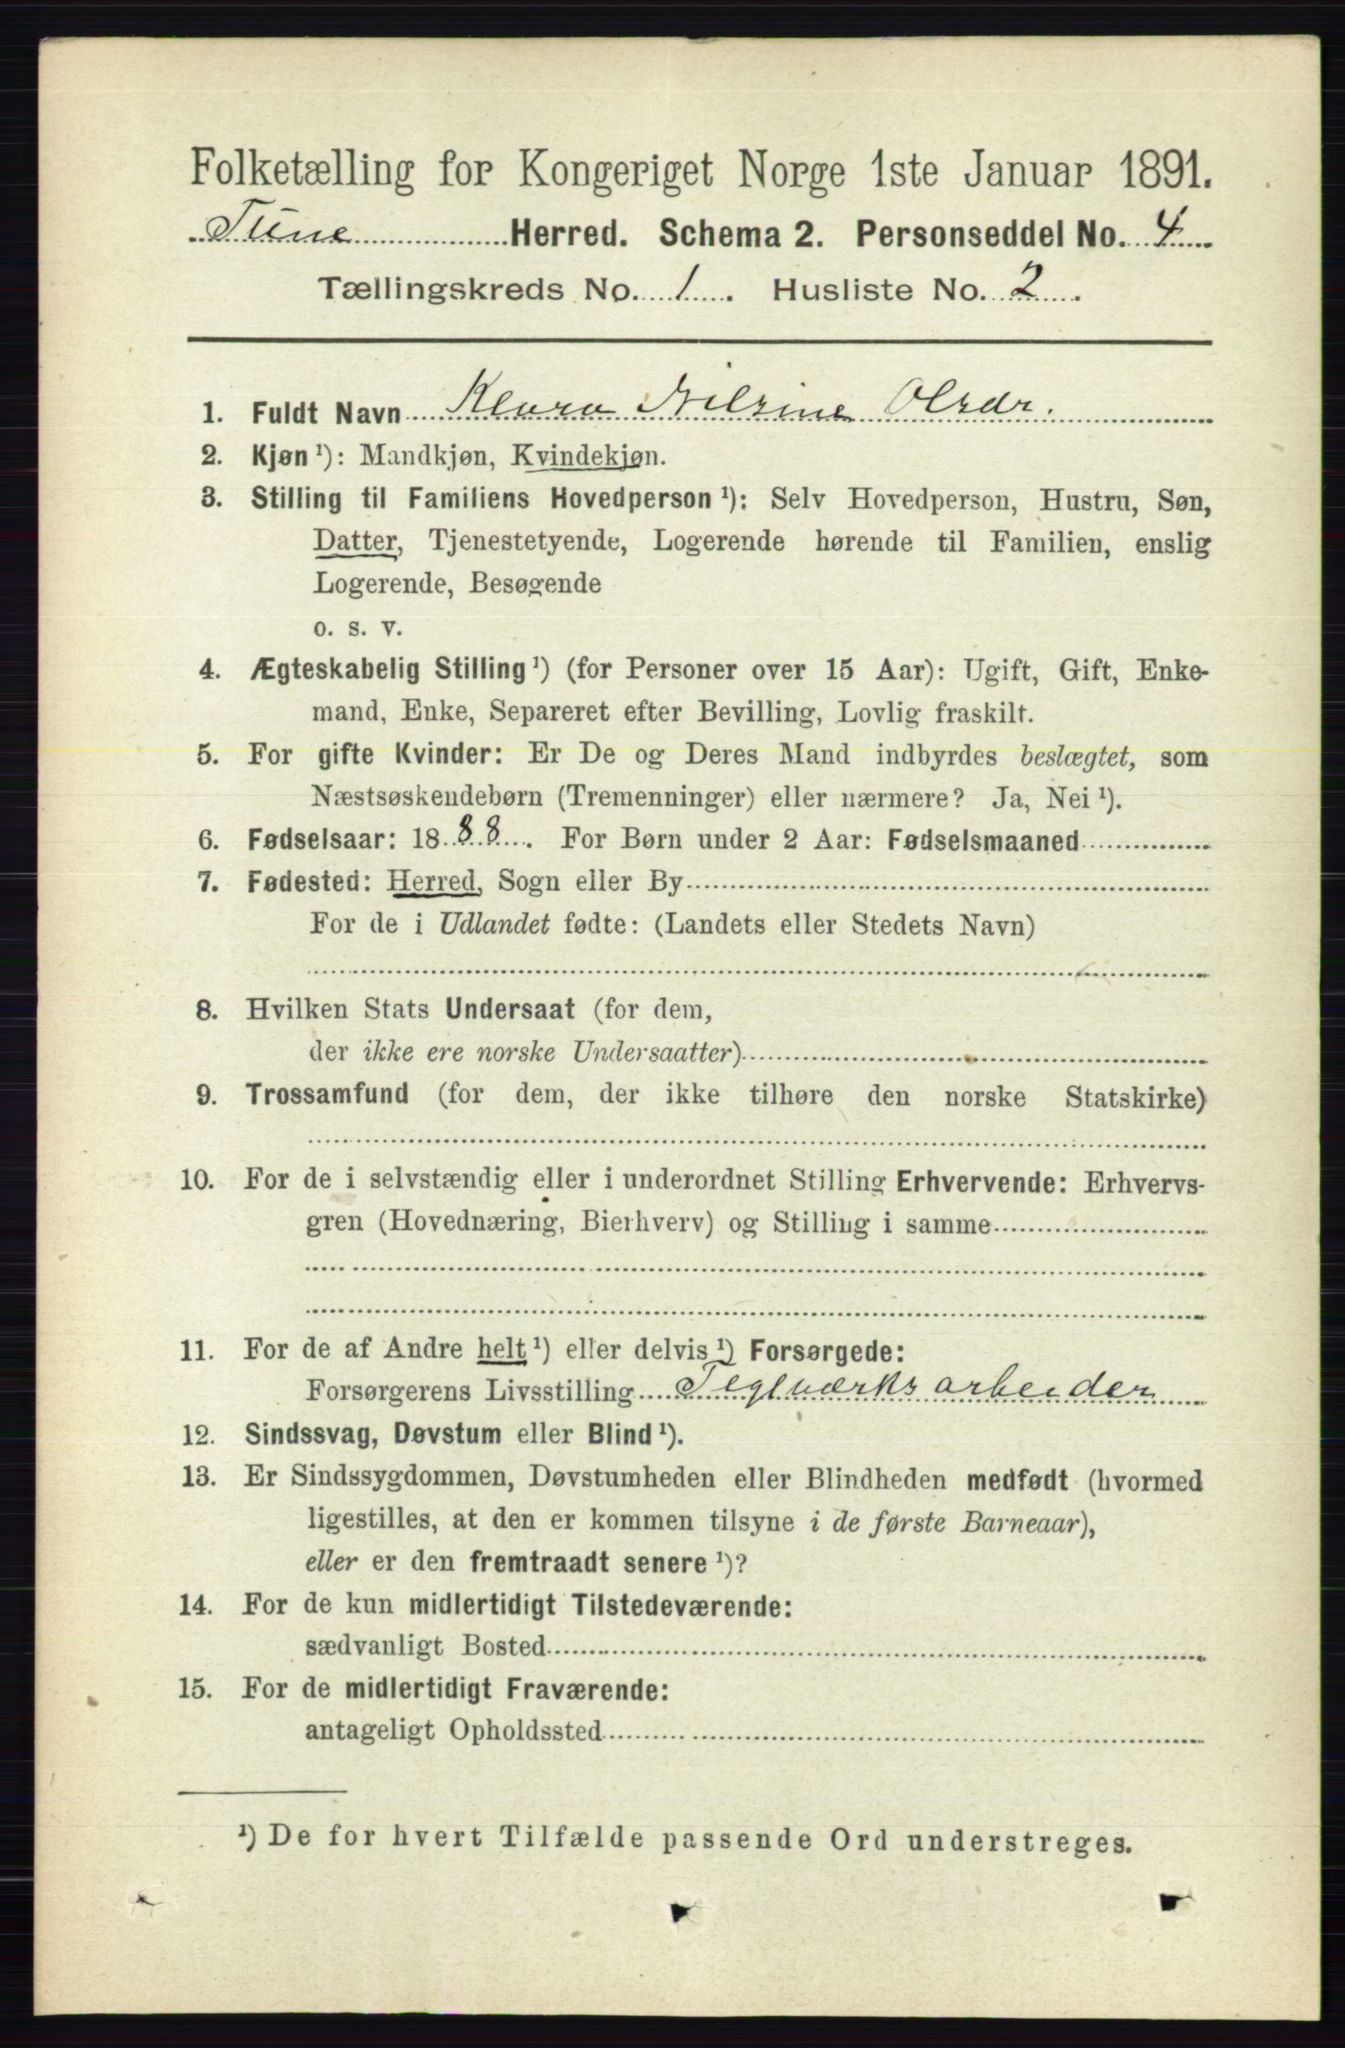 Folketælling for Kongeriget Norge 1ste Januar 1891.
Tune Herred. Schema 2. Personseddel No. 4
Tællingskreds No. 1. Husliste No. 2.
1. Fuldt Navn Klara Nilsine Olsdr.
2. Kjøn ¹): Mandkjøn, Kvindekjøn.
3. Stilling til Familiens Hovedperson ¹): Selv Hovedperson, Hustru, Søn,
Datter, Tjenestetyende, Logerende hørende til Familien, enslig
Logerende, Besøgende
o. s. v.
4. Ægteskabelig Stilling ¹) (for Personer over 15 Aar): Ugift, Gift, Enke-
mand, Enke, Separeret efter Bevilling, Lovlig fraskilt.
5. For gifte Kvinder: Er De og Deres Mand indbyrdes beslægtet, som
Næstsøskendebørn (Tremenninger) eller nærmere? Ja, Nei ¹).
6. Fødselsaar: 1888. For Børn under 2 Aar: Fødselsmaaned
7. Fødested: Herred, Sogn eller By
For de i Udlandet fødte: (Landets eller Stedets Navn)
8. Hvilken Stats Undersaat (for dem,
der ikke ere norske Undersaatter)
9. Trossamfund (for dem, der ikke tilhøre den norske Statskirke)
10. For de i selvstændig eller i underordnet Stilling Erhvervende: Erhvervs-
gren (Hovednæring, Bierhverv) og Stilling i samme
11. For de af Andre helt ¹) eller delvis ¹) Forsørgede:
Forsørgerens Livsstilling Teglværksarbeider
12. Sindssvag, Døvstum eller Blind ¹).
13. Er Sindssygdommen, Døvstumheden eller Blindheden medfødt (hvormed
ligestilles, at den er kommen tilsyne i de første Barneaar),
eller er den fremtraadt senere ¹)?
14. For de kun midlertidigt Tilstedeværende:
sædvanligt Bosted
15. For de midlertidigt Fraværende:
antageligt Opholdssted
¹) De for hvert Tilfælde passende Ord understreges.